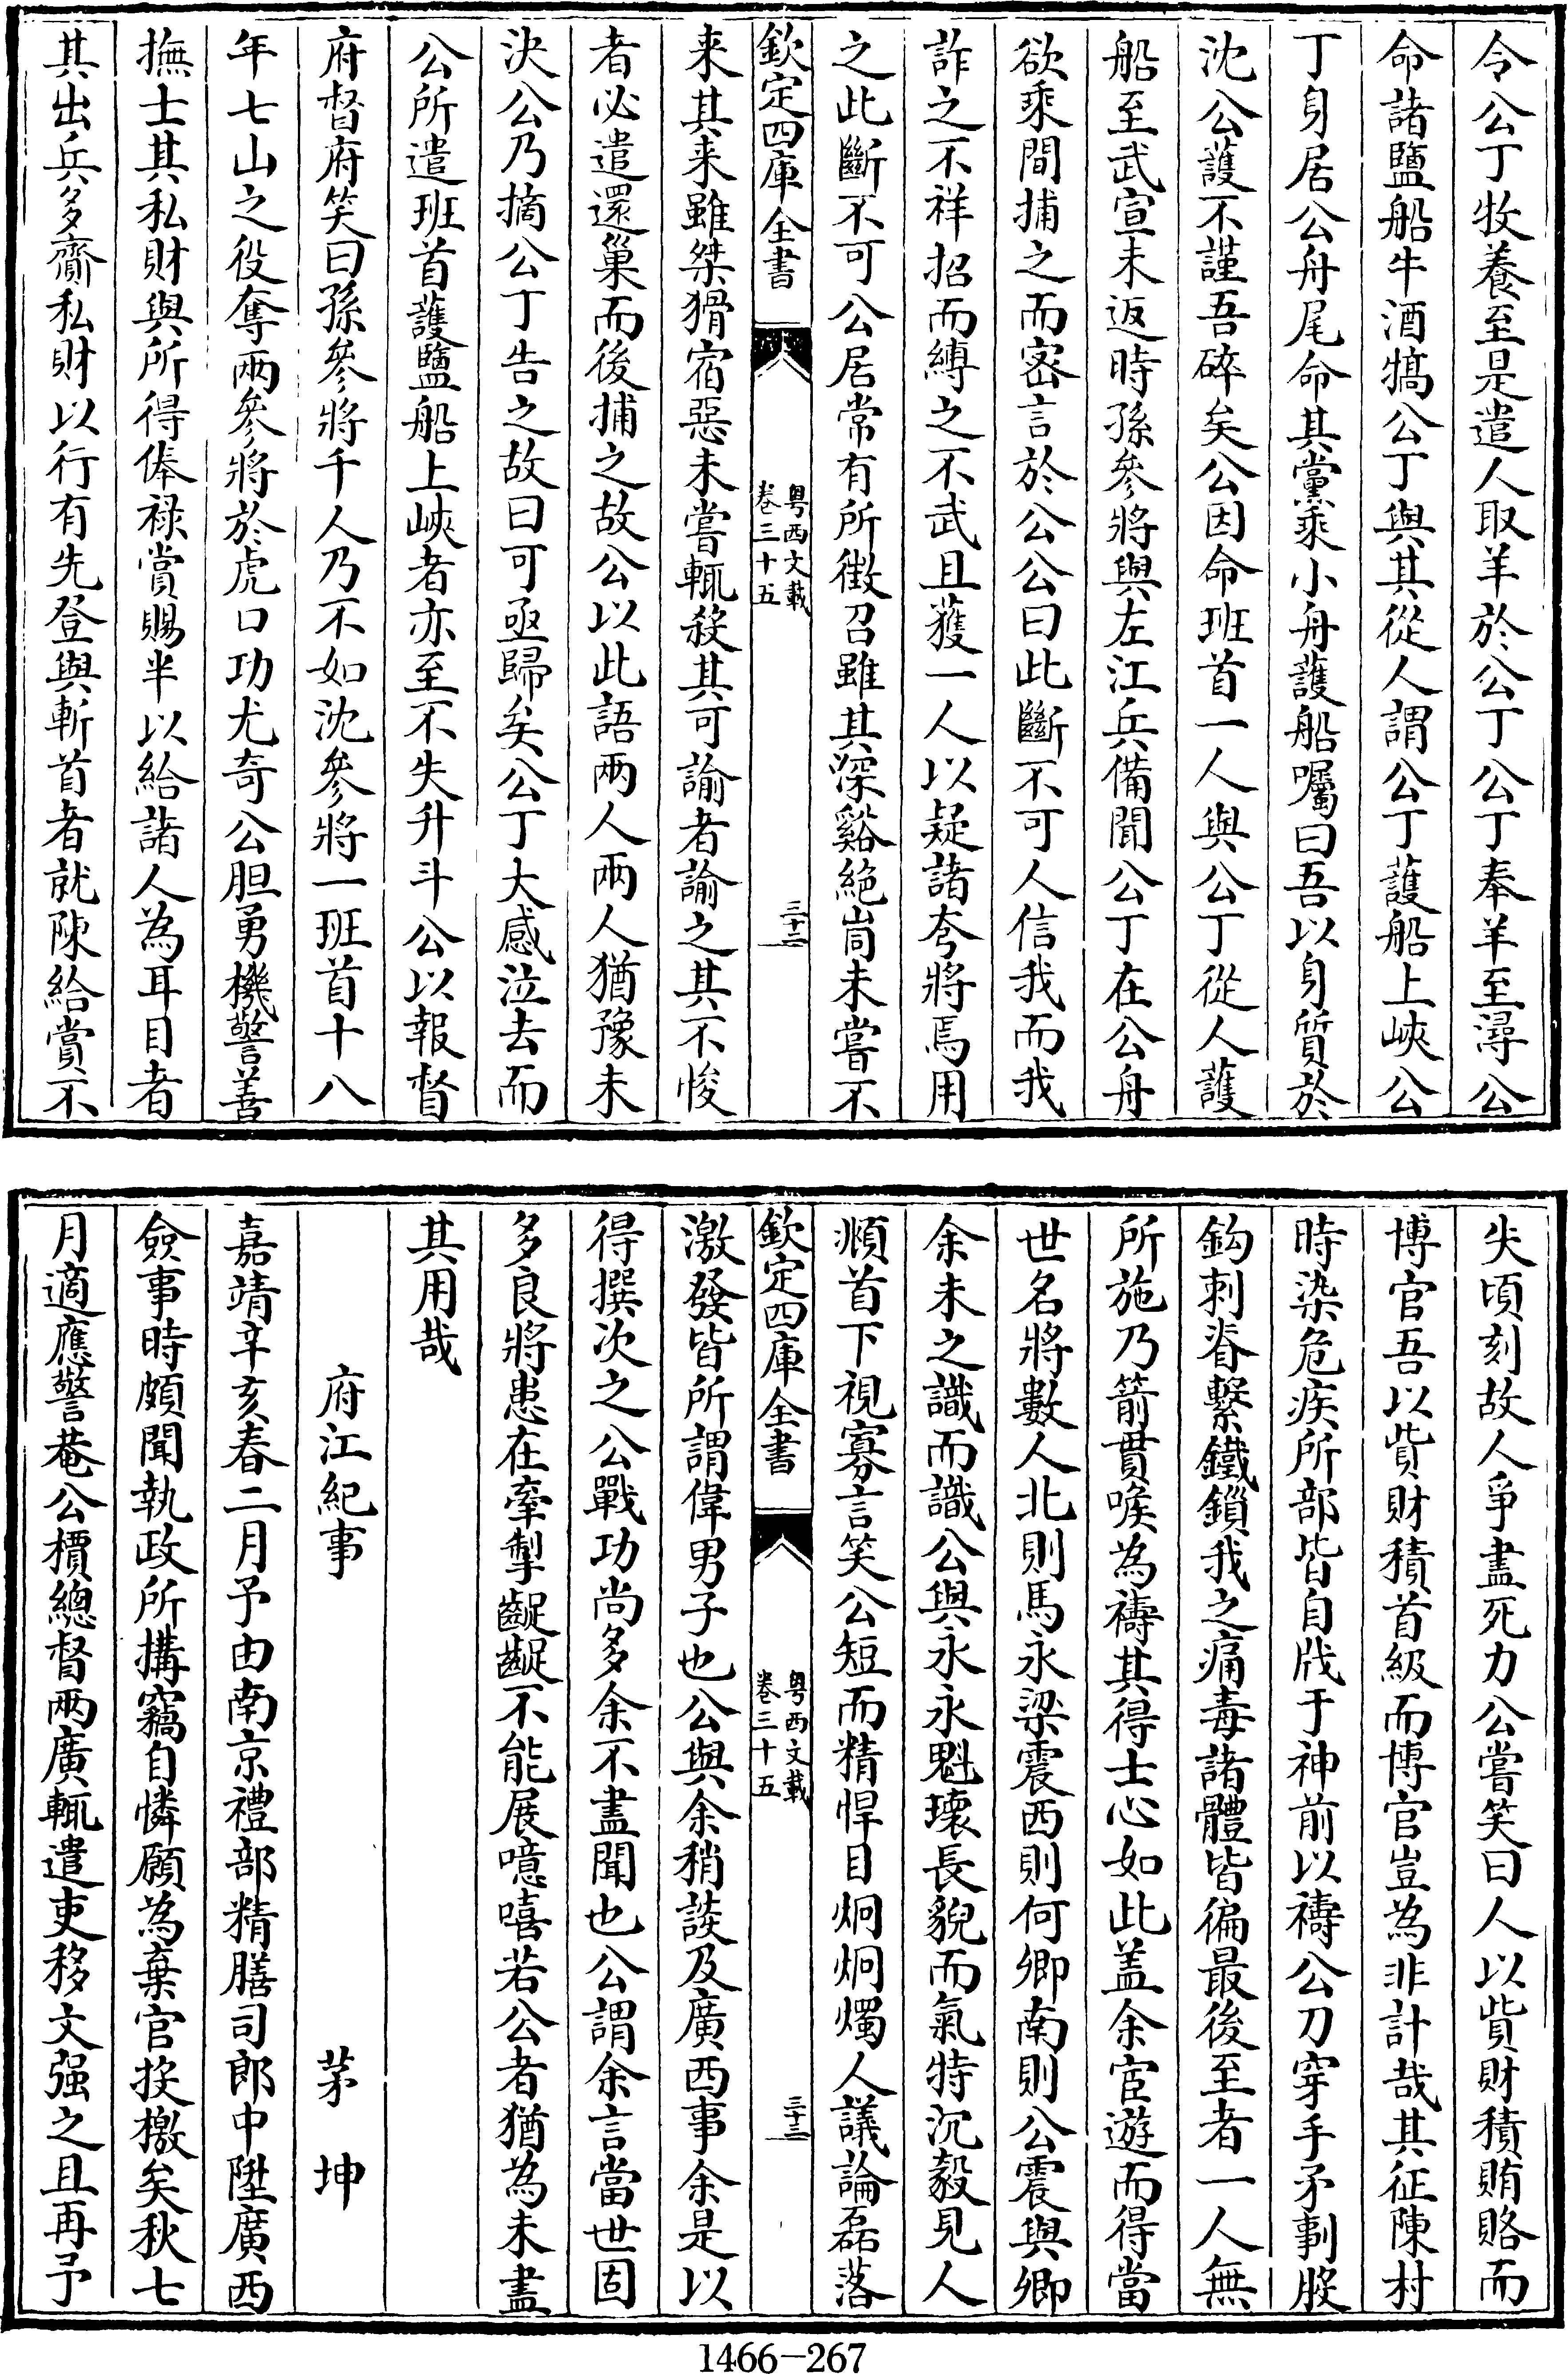 令公丁牧養至是遣人取羊於公丁公丁奉羊至潯公
命諸鹽船牛酒犒公丁與其從人謂公丁護船上峽公
丁身居公舟尾命其黨乘小舟護船囑曰吾以身質於
沈公護不謹吾碎矣公因命班首一人與公丁從人護
船至武宣未返時孫參將與左江兵備聞公丁在公舟
欲乘間捕之而密言於公公曰此斷不可人信我而我
詐之不祥招而縛之不武且獲一人以疑諸夸將焉用
之此斷不可公居常有所徵召雖其深谿絶峝未嘗不
欽定四庫全書
粤西文載
卷三十五
三十二
来其来雖桀猾宿惡未嘗輒殺其可諭者諭之其不悛
者必遣還巢而後捕之故公以此語兩人兩人猶豫未
決公乃摘公丁告之故曰可亟歸矣公丁大感泣去而
公所遣班首護鹽船上峽者亦至不失升斗公以報督
府督府笑曰孫參將千人乃不如沈參將一班首十八
年七山之役奪兩參將於虎口功尤奇公胆勇機警善
撫士其私財與所得俸祿賞賜半以給諸人為耳目者
其出兵多齎私財以行有先登與斬首者就陳給賞不
失頃刻故人爭盡死力公嘗笑曰人以貲財積賄賂而
博官吾以貲財積首級而博官豈為非計哉其征陳村
時染危疾所部皆自戕于神前以禱公刀穿手矛剚股
鈎刺脊繫鐵鎖我之痛毒諸體皆徧最後至者一人無
所施乃箭貫喉為禱其得士心如此盖余宦遊而得當
世名將數人北則馬永梁震西則何卿南則公震與卿
余未之識而識公與永永魁瓌長貌而氣特沉毅見人
頫首下視寡言笑公短而精悍目炯炯燭人議論磊落
欽定四庫全書
粤西文載
卷三十五
三十三
激發皆所謂偉男子也公與余稍談及廣西事余是以
得撰次之公戰功尚多余不盡聞也公謂余言當世固
多良將患在牽掣齷齪不能展噫嘻若公者猶為未盡
其用哉
府江紀事
茅坤
嘉靖辛亥春二月予由南京禮部精膳司郎中陞廣西
僉事時頗聞執政所搆竊自憐願為棄官投檄矣秋七
月適應警菴公檟總督兩廣輒遣吏移文强之且再予
1466-267